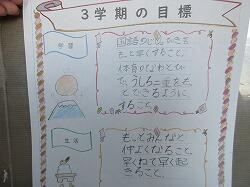 3学期の目標
学習
国語のじしょひきを
もっと早くすること。
体育のなわとび
で、うしろ二重をも
っとできるように
すること。
生活
もっとみんなと
仲よくなること。
早くねて早く起
きること。